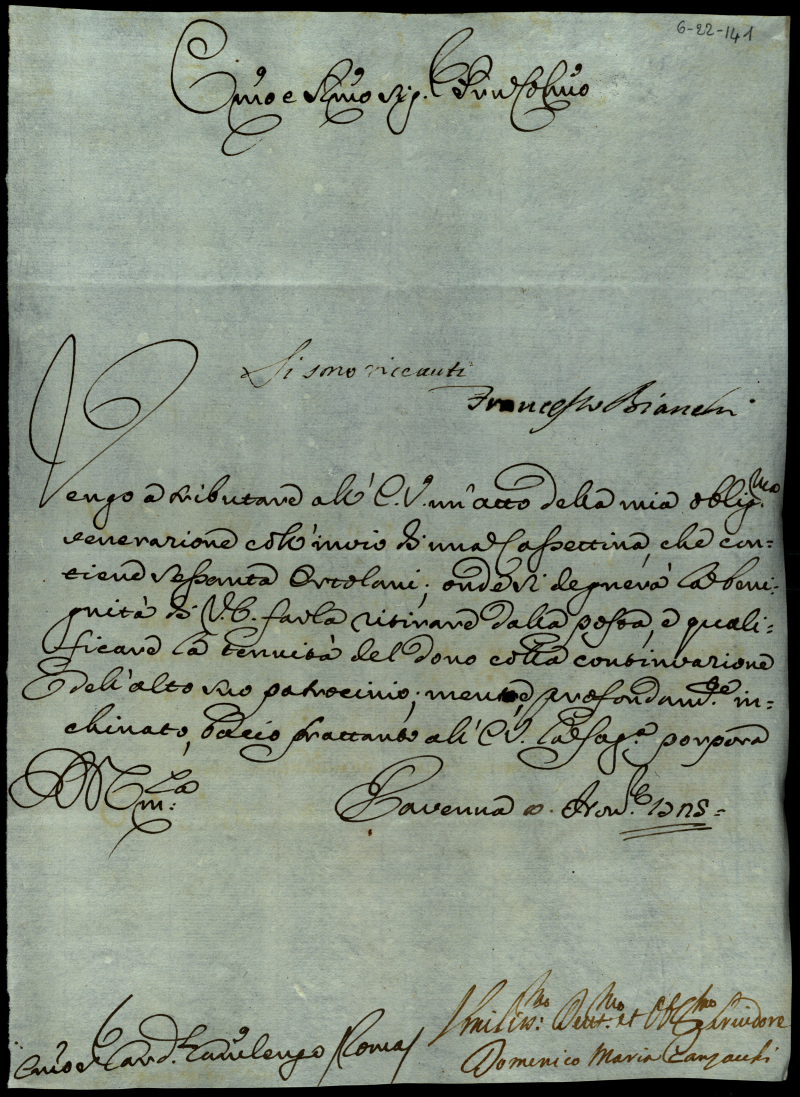 6-22-141
Emo e Rmo Sig. Prne Colmo
Si sono riceauti
Francesco Bianchi
Vengo a tributare all'E.V. un'atto della mia obblig.ma
venerazione coll'invio di una Cassettina, che con-
tiene sessanta Ortolani; onde si degnerà la beni-
gnità di V.E. farla ritirare dalla posta, e quali-
ficare la tenuità del dono colla continvazione
dell'alto suo patrocinio; mentre profondam.te in-
chinato, bacio frattanto all'E.V. la Sag.a porpora
Ravenna
Emo Card. Camerlengo Roma
Umiliss.mo Devot.mo et Obb.mo Servidore
Domenico Maria